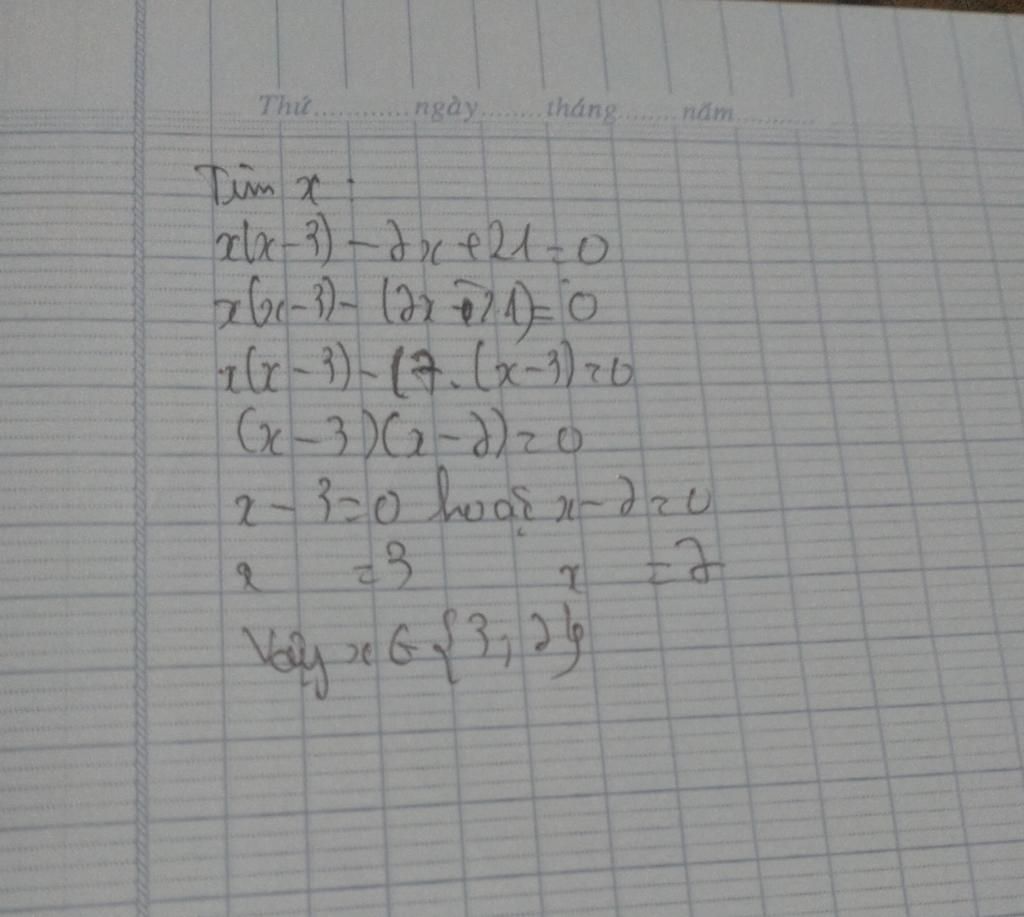 Thứ............ngày........tháng.......năm...........
Tìm x :
x(x-3) - 7x + 21 = 0
x(x-3) - (7x - 21) = 0
x(x-3) - (7.(x-3) = 0
(x-3)(x-7) = 0
x - 3 = 0 hoặc x - 7 = 0
x = 3 x = 7
Vậy x ∈ {3; 7}